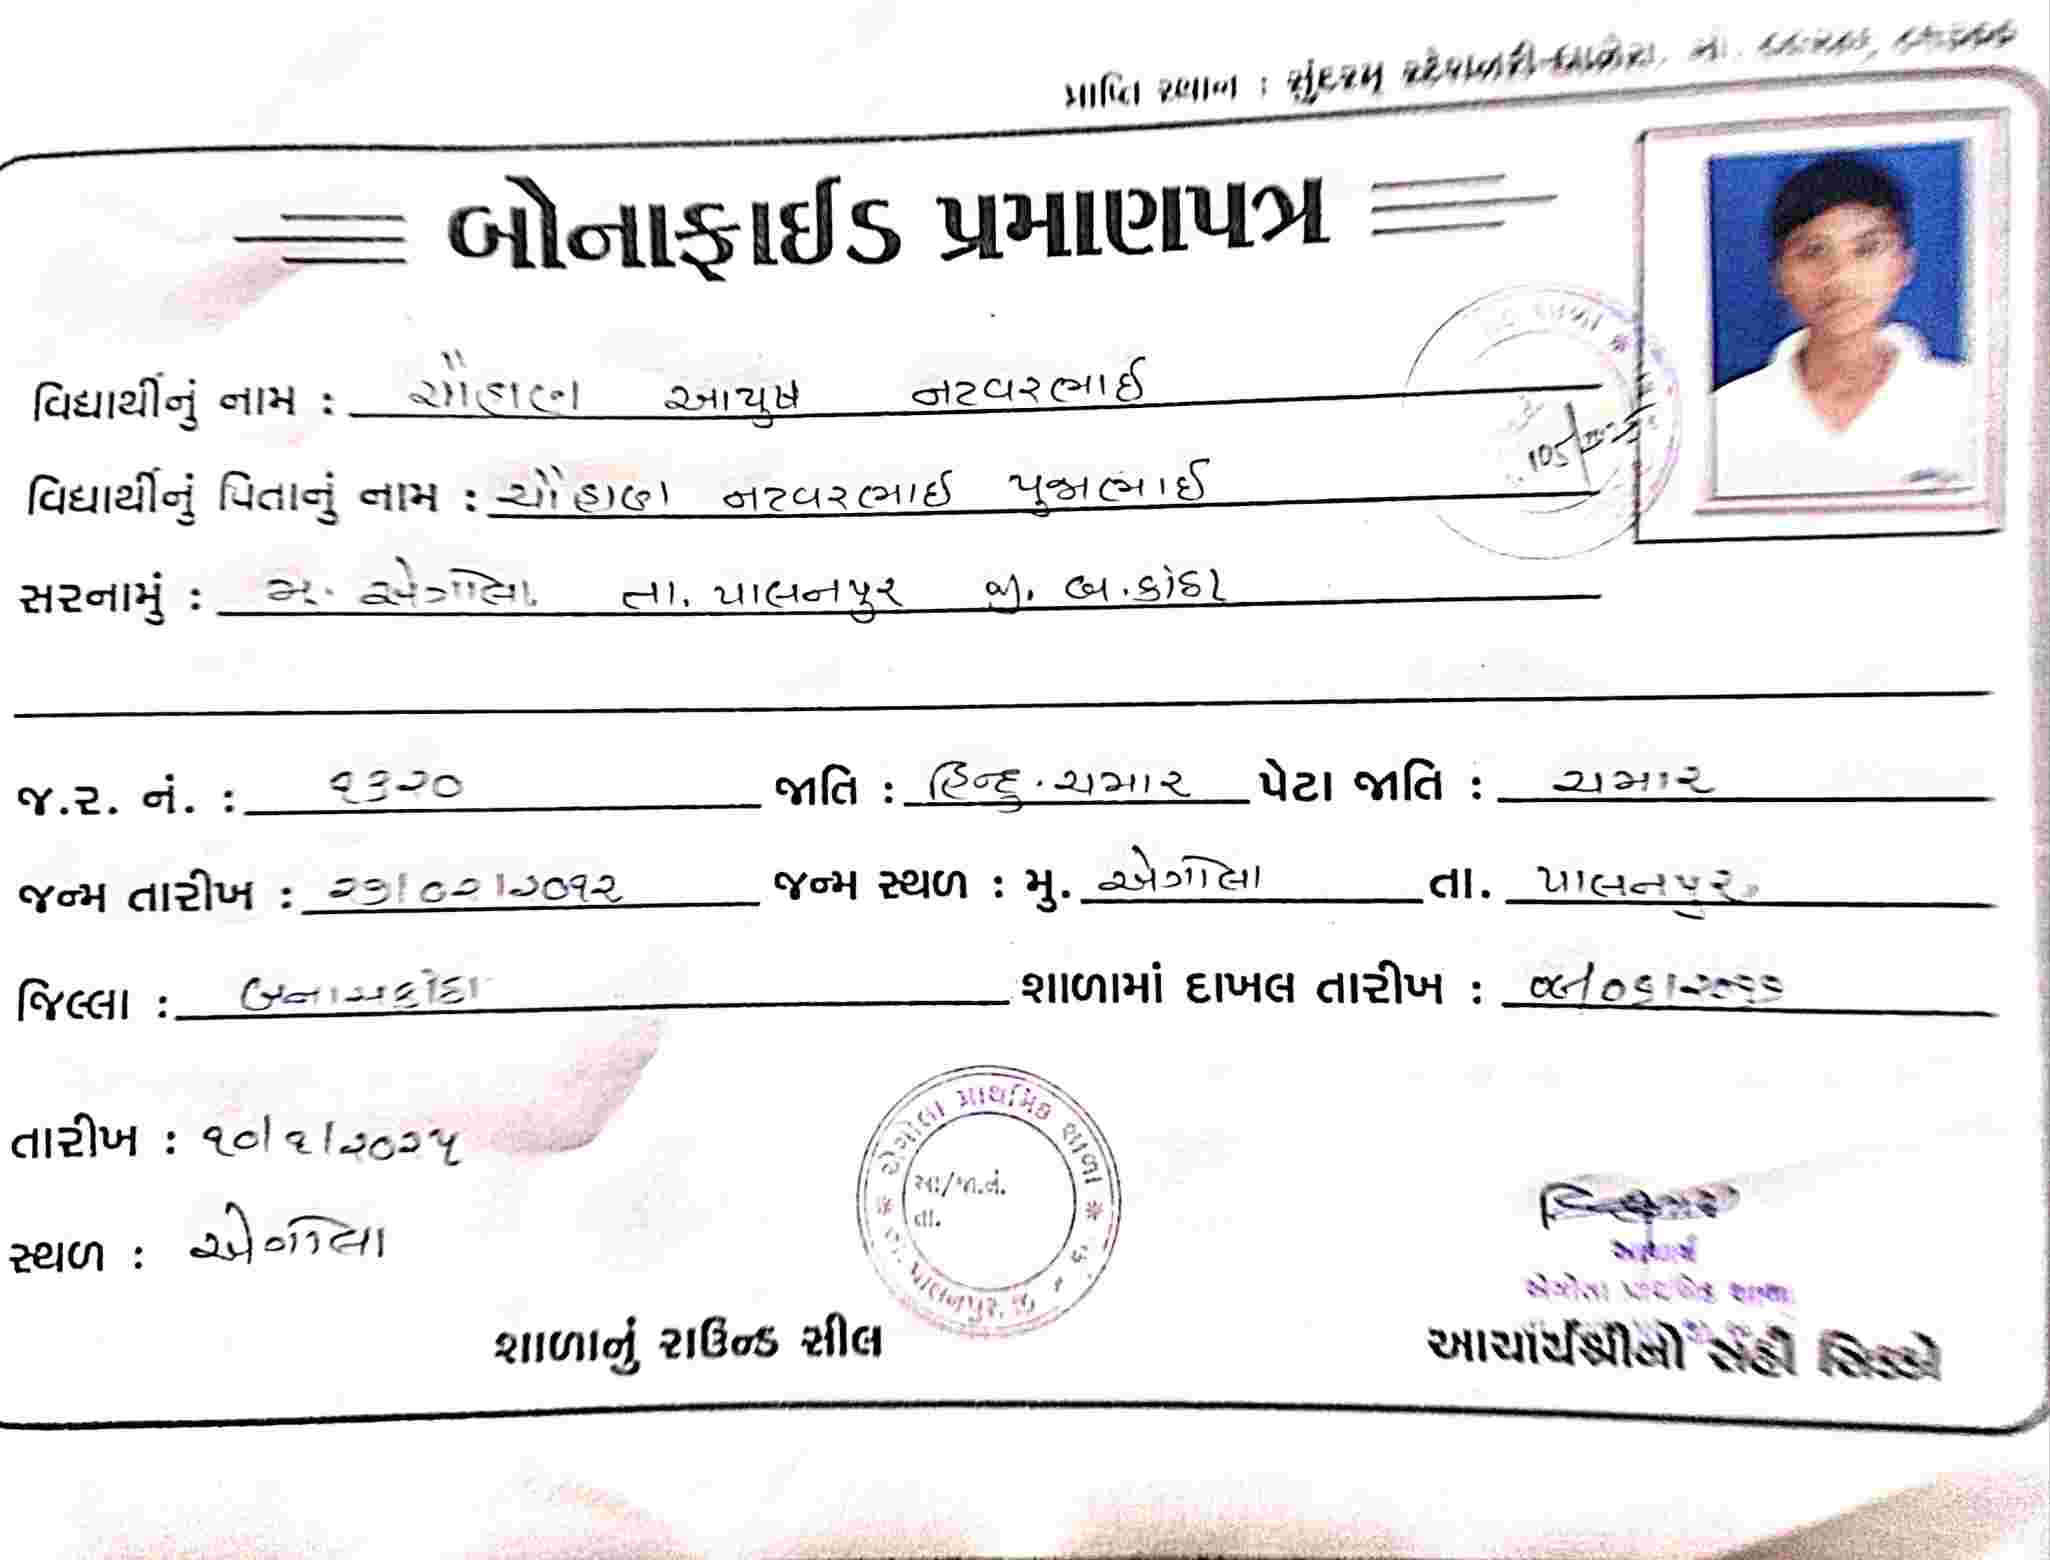 પ્રાપ્તિ સ્થાન : સુંદરમ
બોનાફાઈડ પ્રમાણપત્ર
વિદ્યાર્થીનું નામ : ચૌહાણ આયુષ નટવરભાઈ
વિદ્યાર્થીનું પિતાનું નામ : ચૌહાણ નટવરભાઈ પુજાભાઈ
સરનામું : મુ. એગોલા તા. પાલનપુર જી. બ.કાંઠા
જ.ર. નં. : ૧૩૨૦ જાતિ : હિન્દુ. ચમાર પેટા જાતિ : ચમાર
જન્મ તારીખ : ૨૩/૦૨/૨૦૧૨ જન્મ સ્થળ : મુ. એગોલા તા. પાલનપુર
જિલ્લા : બનાસકાંઠા શાળામાં દાખલ તારીખ :
તારીખ : ૧૦/૬/૨૦૨૫
સ્થળ : એગોલા
એગોલા પ્રાથમિક શાળા
આ/જા.નં.
તા.
તા. પાલનપુર, જી.
આચાર્ય
શાળાનું રાઉન્ડ સીલ આચાર્યશ્રીની સહી સિક્કો